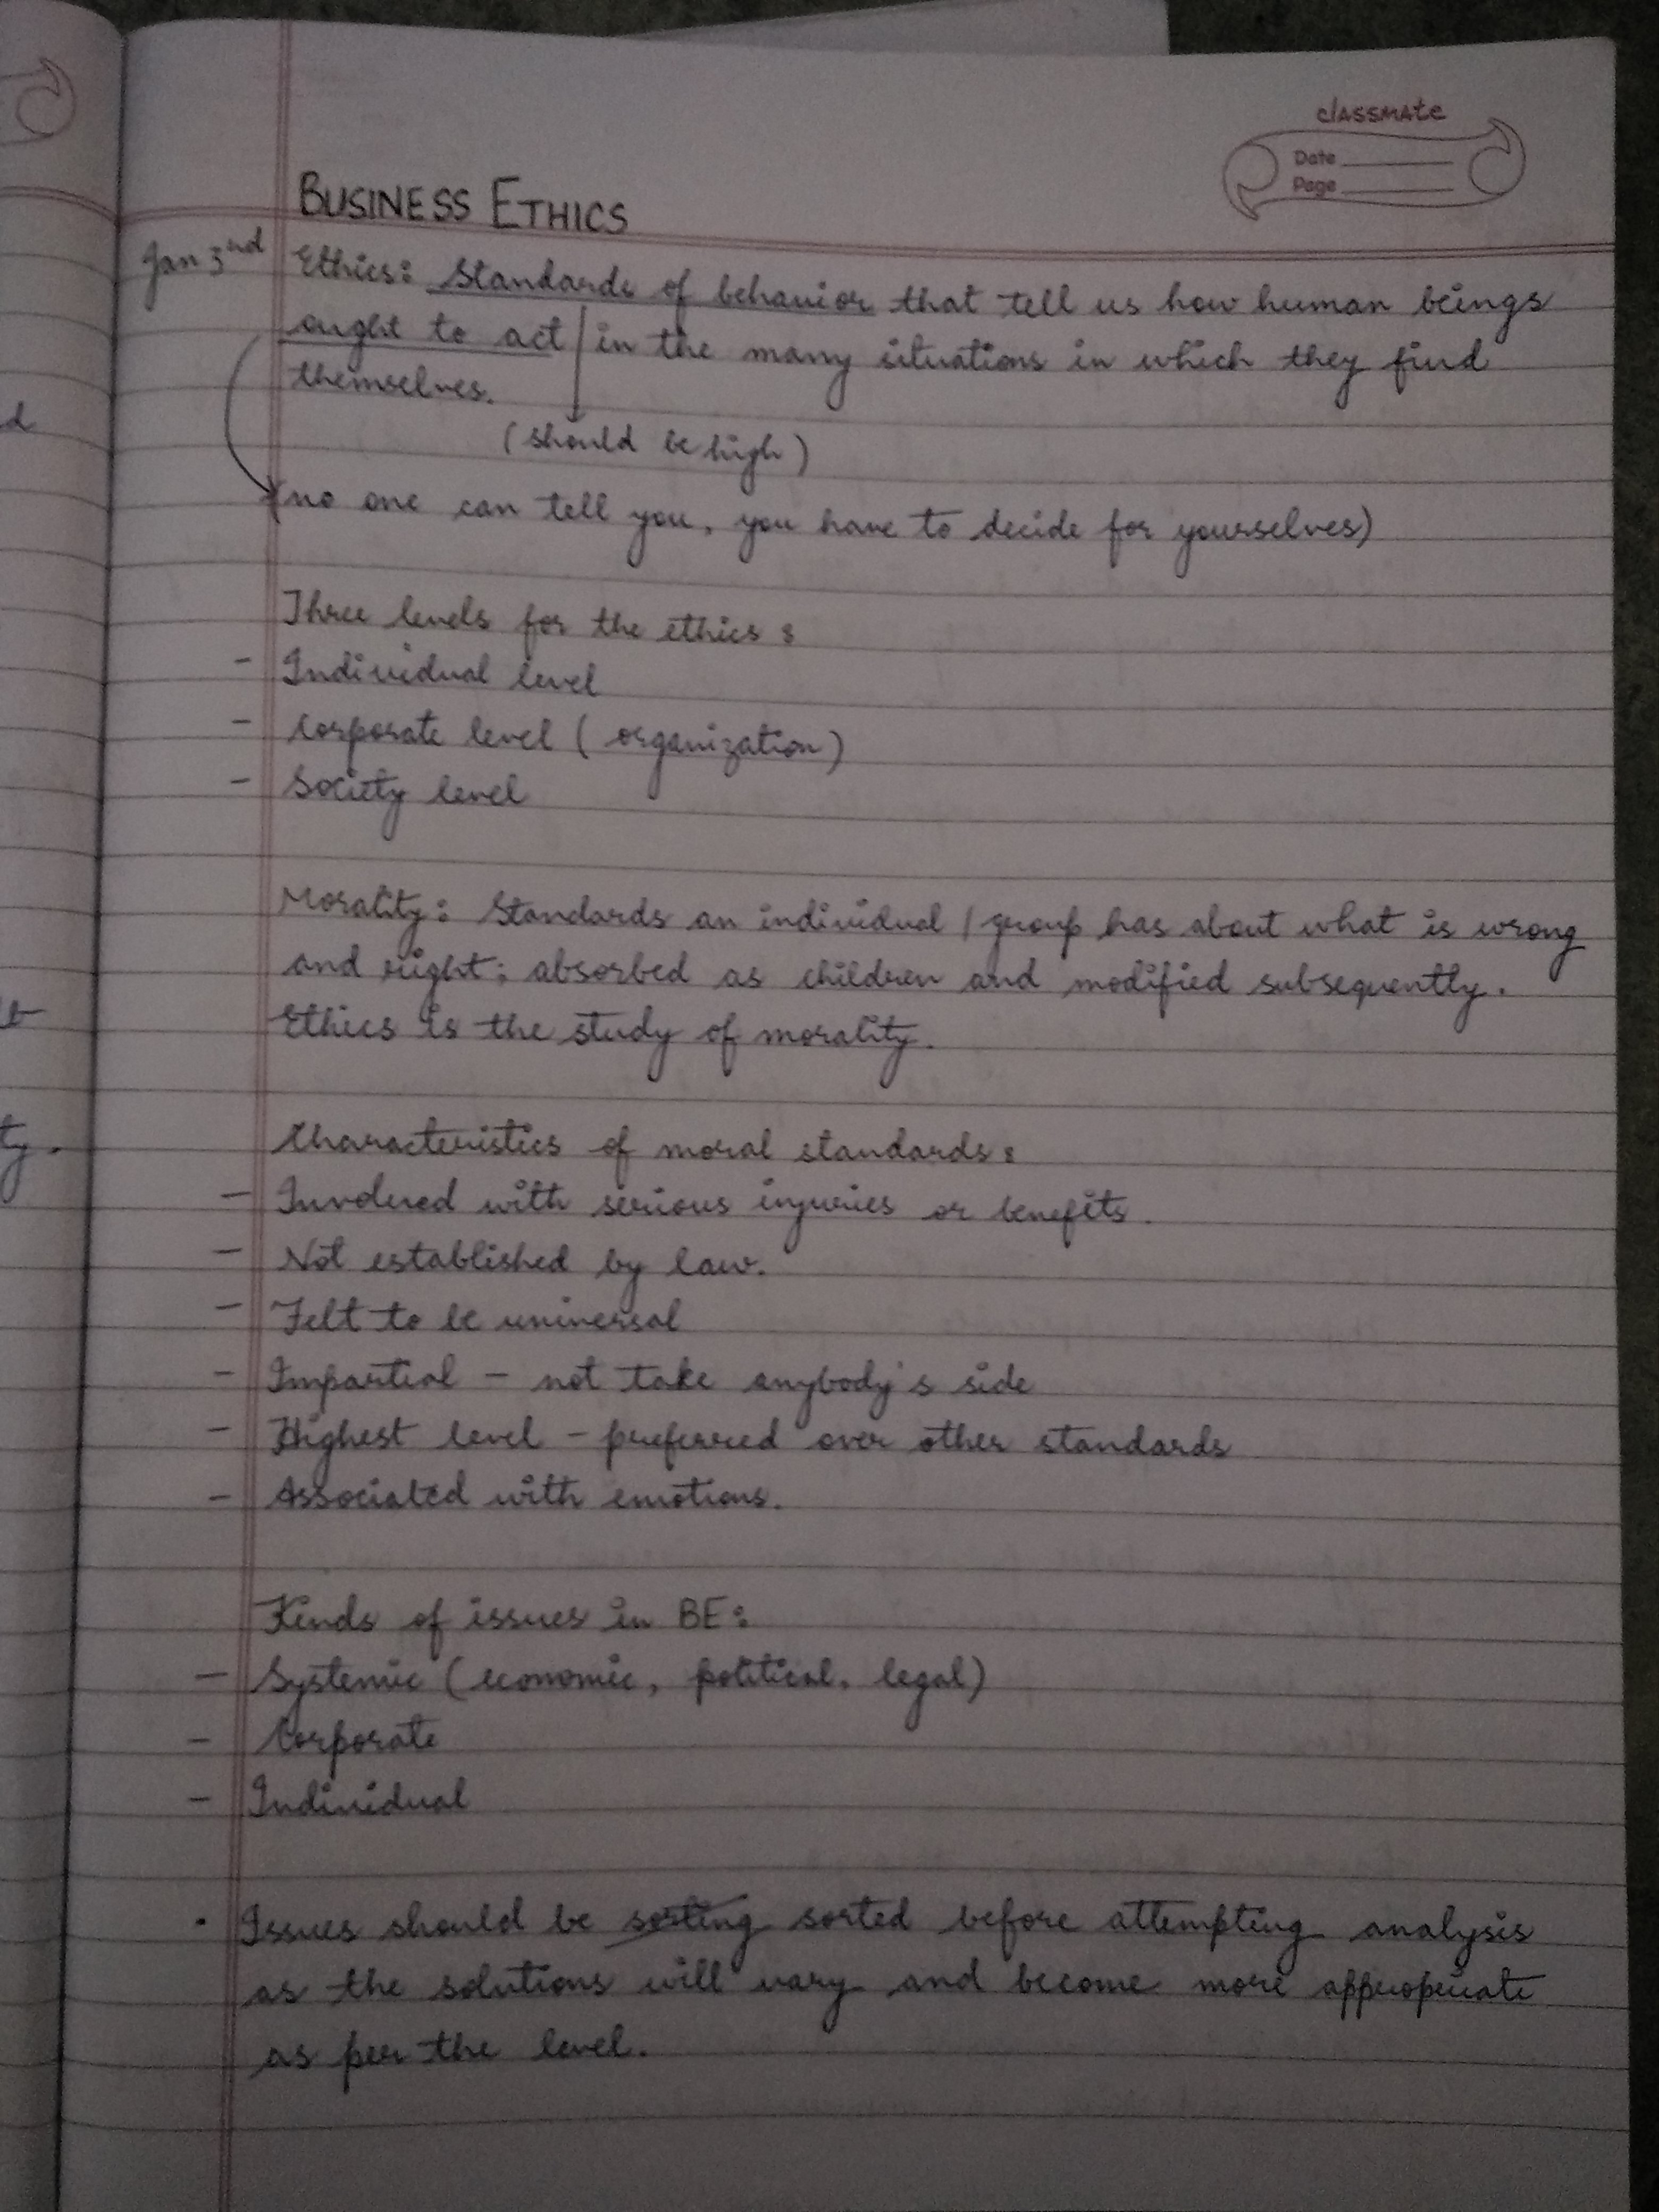 classmate
Date
Page
BUSINESS ETHICS
Jan 3nd
Ethics: Standards of behavior that tell us how human beings
ought to act in the many situations in which they find
themselves.
(should be high)
(no one can tell you, you have to decide for yourselves)
Three levels for the ethics:
- Individual level
- Corporate level (organization)
- Society level
Morality: Standards an individual / group has about what is wrong
and right; absorbed as children and modified subsequently.
Ethics is the study of morality.
Characteristics of moral standards:
- Involered with serious injuries or benefits.
- Not established by law.
- Felt to be universal
- Impartial - not take anybody's side
- Highest level - preferred over other standards
- Associated with emotions.
Kinds of issues in BE:
- Systemic (economic, political, legal)
- Corporate
- Individual
• Issues should be sorting sorted before attempting analysis
as the solutions will vary and become more appropriate
as per the level.
d
ty.